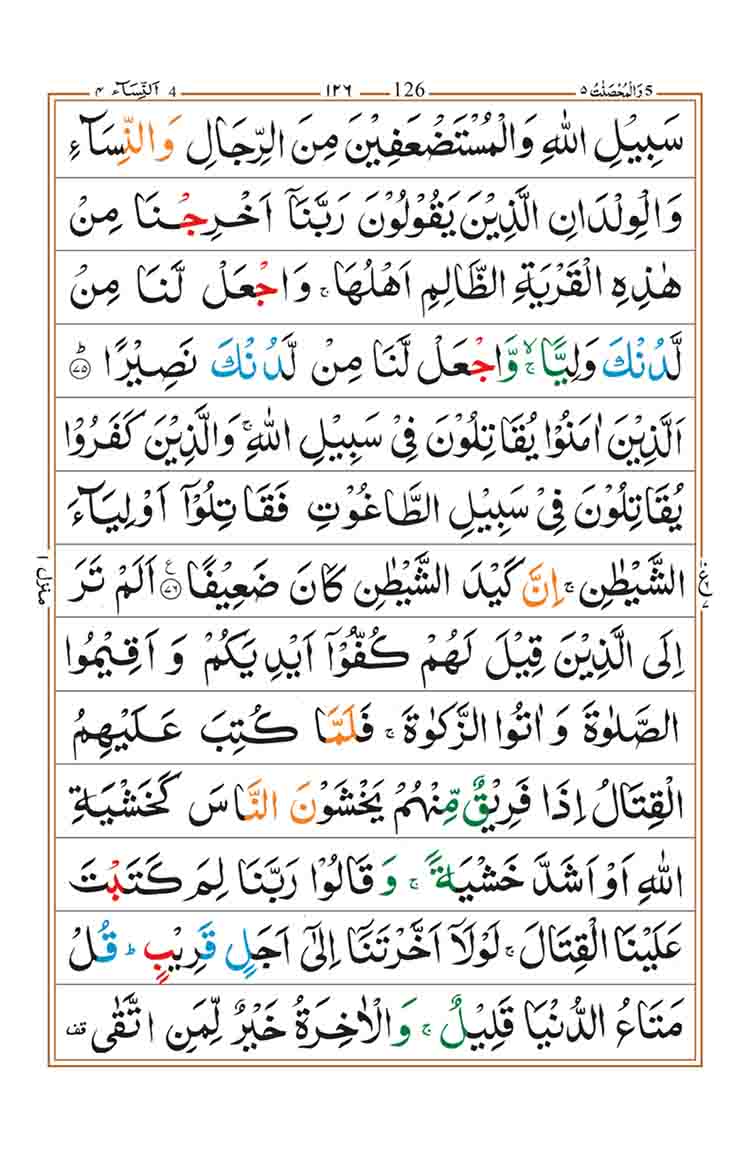 5 وَالْمُحْصَنٰتُ ٥ 126 ١٢٦ 4 اَلنِّسَآء ٤
سَبِيْلِ اللّٰهِ وَالْمُسْتَضْعَفِيْنَ مِنَ الرِّجَالِ وَالنِّسَآءِ
وَالْوِلْدَانِ الَّذِيْنَ يَقُوْلُوْنَ رَبَّنَاۤ اَخْرِجْنَا مِنْ
هٰذِهِ الْقَرْيَةِ الظَّالِمِ اَهْلُهَا ۚ وَاجْعَلْ لَّنَا مِنْ
لَّدُنْكَ وَلِيًّا ۙۚ وَّاجْعَلْ لَّنَا مِنْ لَّدُنْكَ نَصِيْرًا ؕ ﴿٧٥﴾
اَلَّذِيْنَ اٰمَنُوْا يُقَاتِلُوْنَ فِيْ سَبِيْلِ اللّٰهِ ۚ وَالَّذِيْنَ كَفَرُوْا
يُقَاتِلُوْنَ فِيْ سَبِيْلِ الطَّاغُوْتِ فَقَاتِلُوْۤا اَوْلِيَآءَ
الشَّيْطٰنِ ۚ اِنَّ كَيْدَ الشَّيْطٰنِ كَانَ ضَعِيْفًا ﴿٧٦﴾ ع اَلَمْ تَرَ
منزل ١
اِلَى الَّذِيْنَ قِيْلَ لَهُمْ كُفُّوْۤا اَيْدِيَكُمْ وَ اَقِيْمُوا
الصَّلٰوةَ وَ اٰتُوا الزَّكٰوةَ ۚ فَلَمَّا كُتِبَ عَلَيْهِمُ
الْقِتَالُ اِذَا فَرِيْقٌ مِّنْهُمْ يَخْشَوْنَ النَّاسَ كَخَشْيَةِ
اللّٰهِ اَوْ اَشَدَّ خَشْيَةً ۚ وَ قَالُوْا رَبَّنَا لِمَ كَتَبْتَ
عَلَيْنَا الْقِتَالَ ۚ لَوْلَاۤ اَخَّرْتَنَاۤ اِلٰۤى اَجَلٍ قَرِيْبٍ ؕ قُلْ
مَتَاعُ الدُّنْيَا قَلِيْلٌ ۚ وَالْاٰخِرَةُ خَيْرٌ لِّمَنِ اتَّقٰى قف